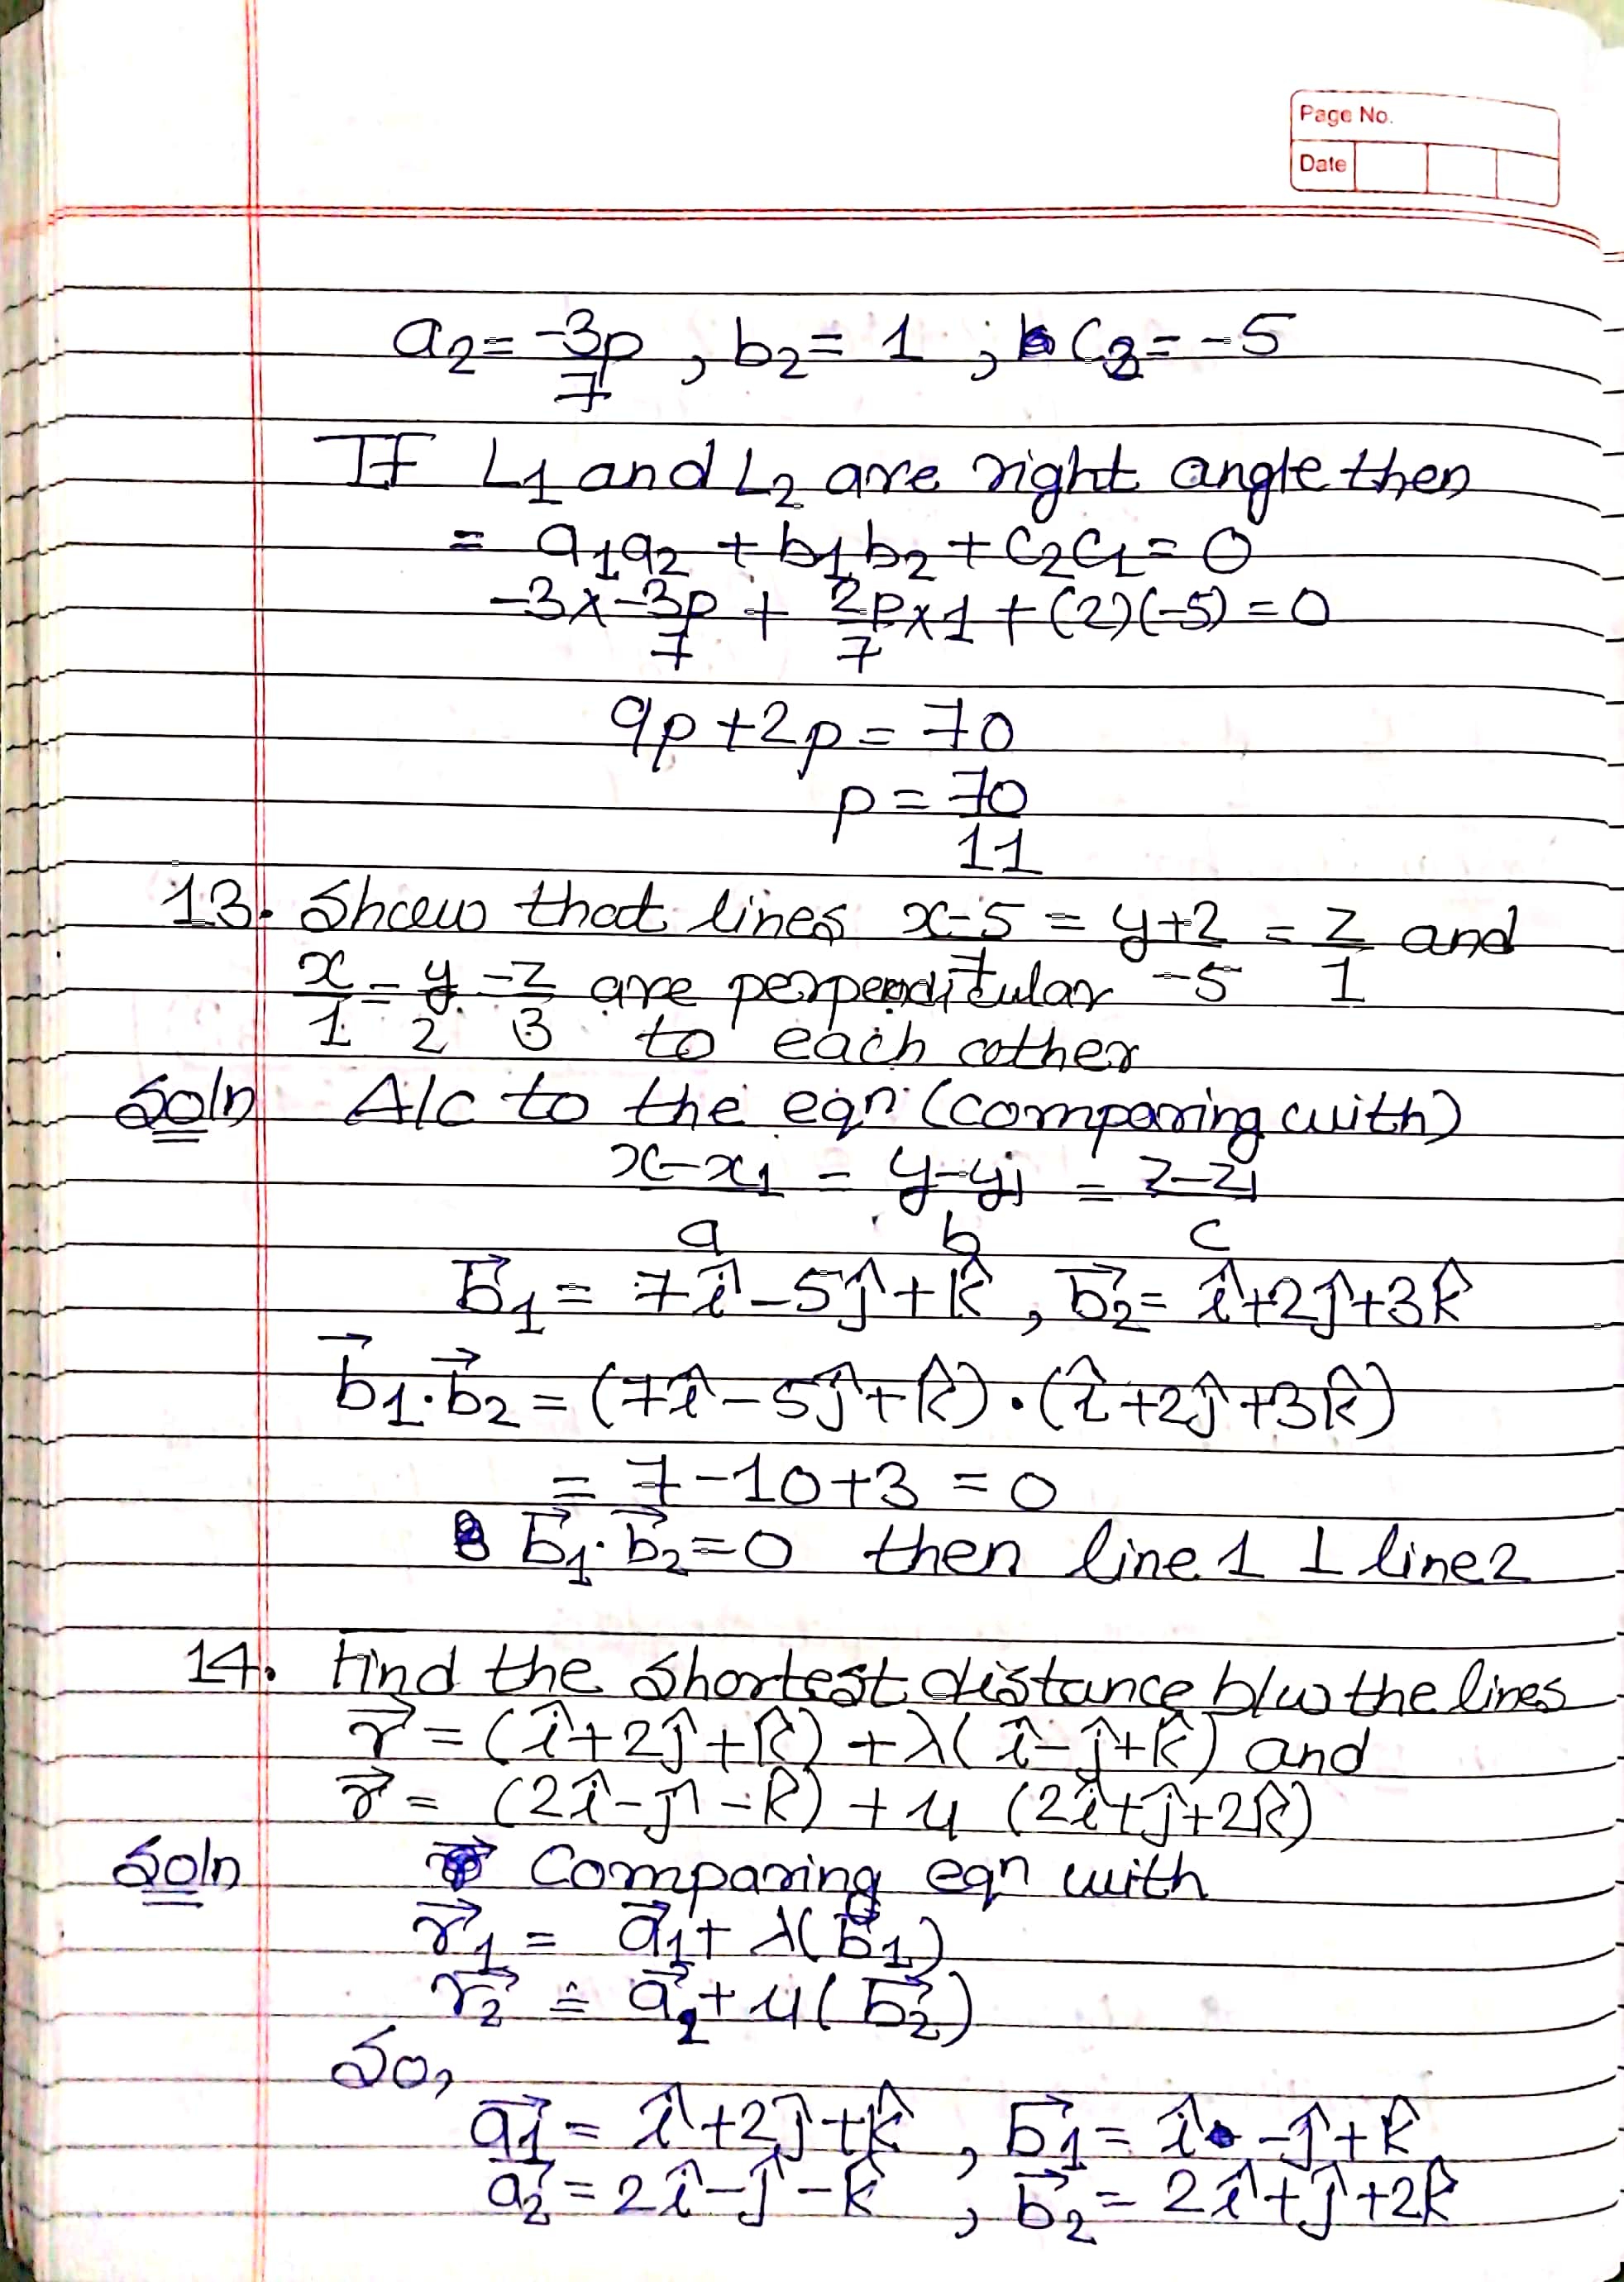 Page No.
Date
a2 = -3p/7 , b2 = 1 , c2 = -5
If L1 and L2 are right angle then
= a1a2 + b1b2 + c2c1 = 0
-3 x -3p/7 + 2p/7 x 1 + (2)(-5) = 0
9p + 2p = 70
p = 70/11
13. Show that lines x-5/7 = y+2/-5 = z/1 and
x/1 = y/2 = z/3 are perpendicular
to each other
Soln A/c to the eqn (comparing with)
x-x1/a = y-y1/b = z-z1/c
b⃗1 = 7î - 5ĵ + k̂ , b⃗2 = î + 2ĵ + 3k̂
b⃗1 · b⃗2 = (7î - 5ĵ + k̂) · (î + 2ĵ + 3k̂)
= 7 - 10 + 3 = 0
b⃗1 · b⃗2 = 0 then line 1 ⊥ line 2
14. Find the shortest distance b/w the lines
r⃗ = (î + 2ĵ + k̂) + λ(î - ĵ + k̂) and
r⃗ = (2î - ĵ - k̂) + μ (2î + ĵ + 2k̂)
Soln Comparing eqn with
r⃗1 = a⃗1 + λ(b⃗1)
r⃗2 = a⃗2 + μ(b⃗2)
So,
a⃗1 = î + 2ĵ + k̂ , b⃗1 = î - ĵ + k̂
a⃗2 = 2î - ĵ - k̂ , b⃗2 = 2î + ĵ + 2k̂